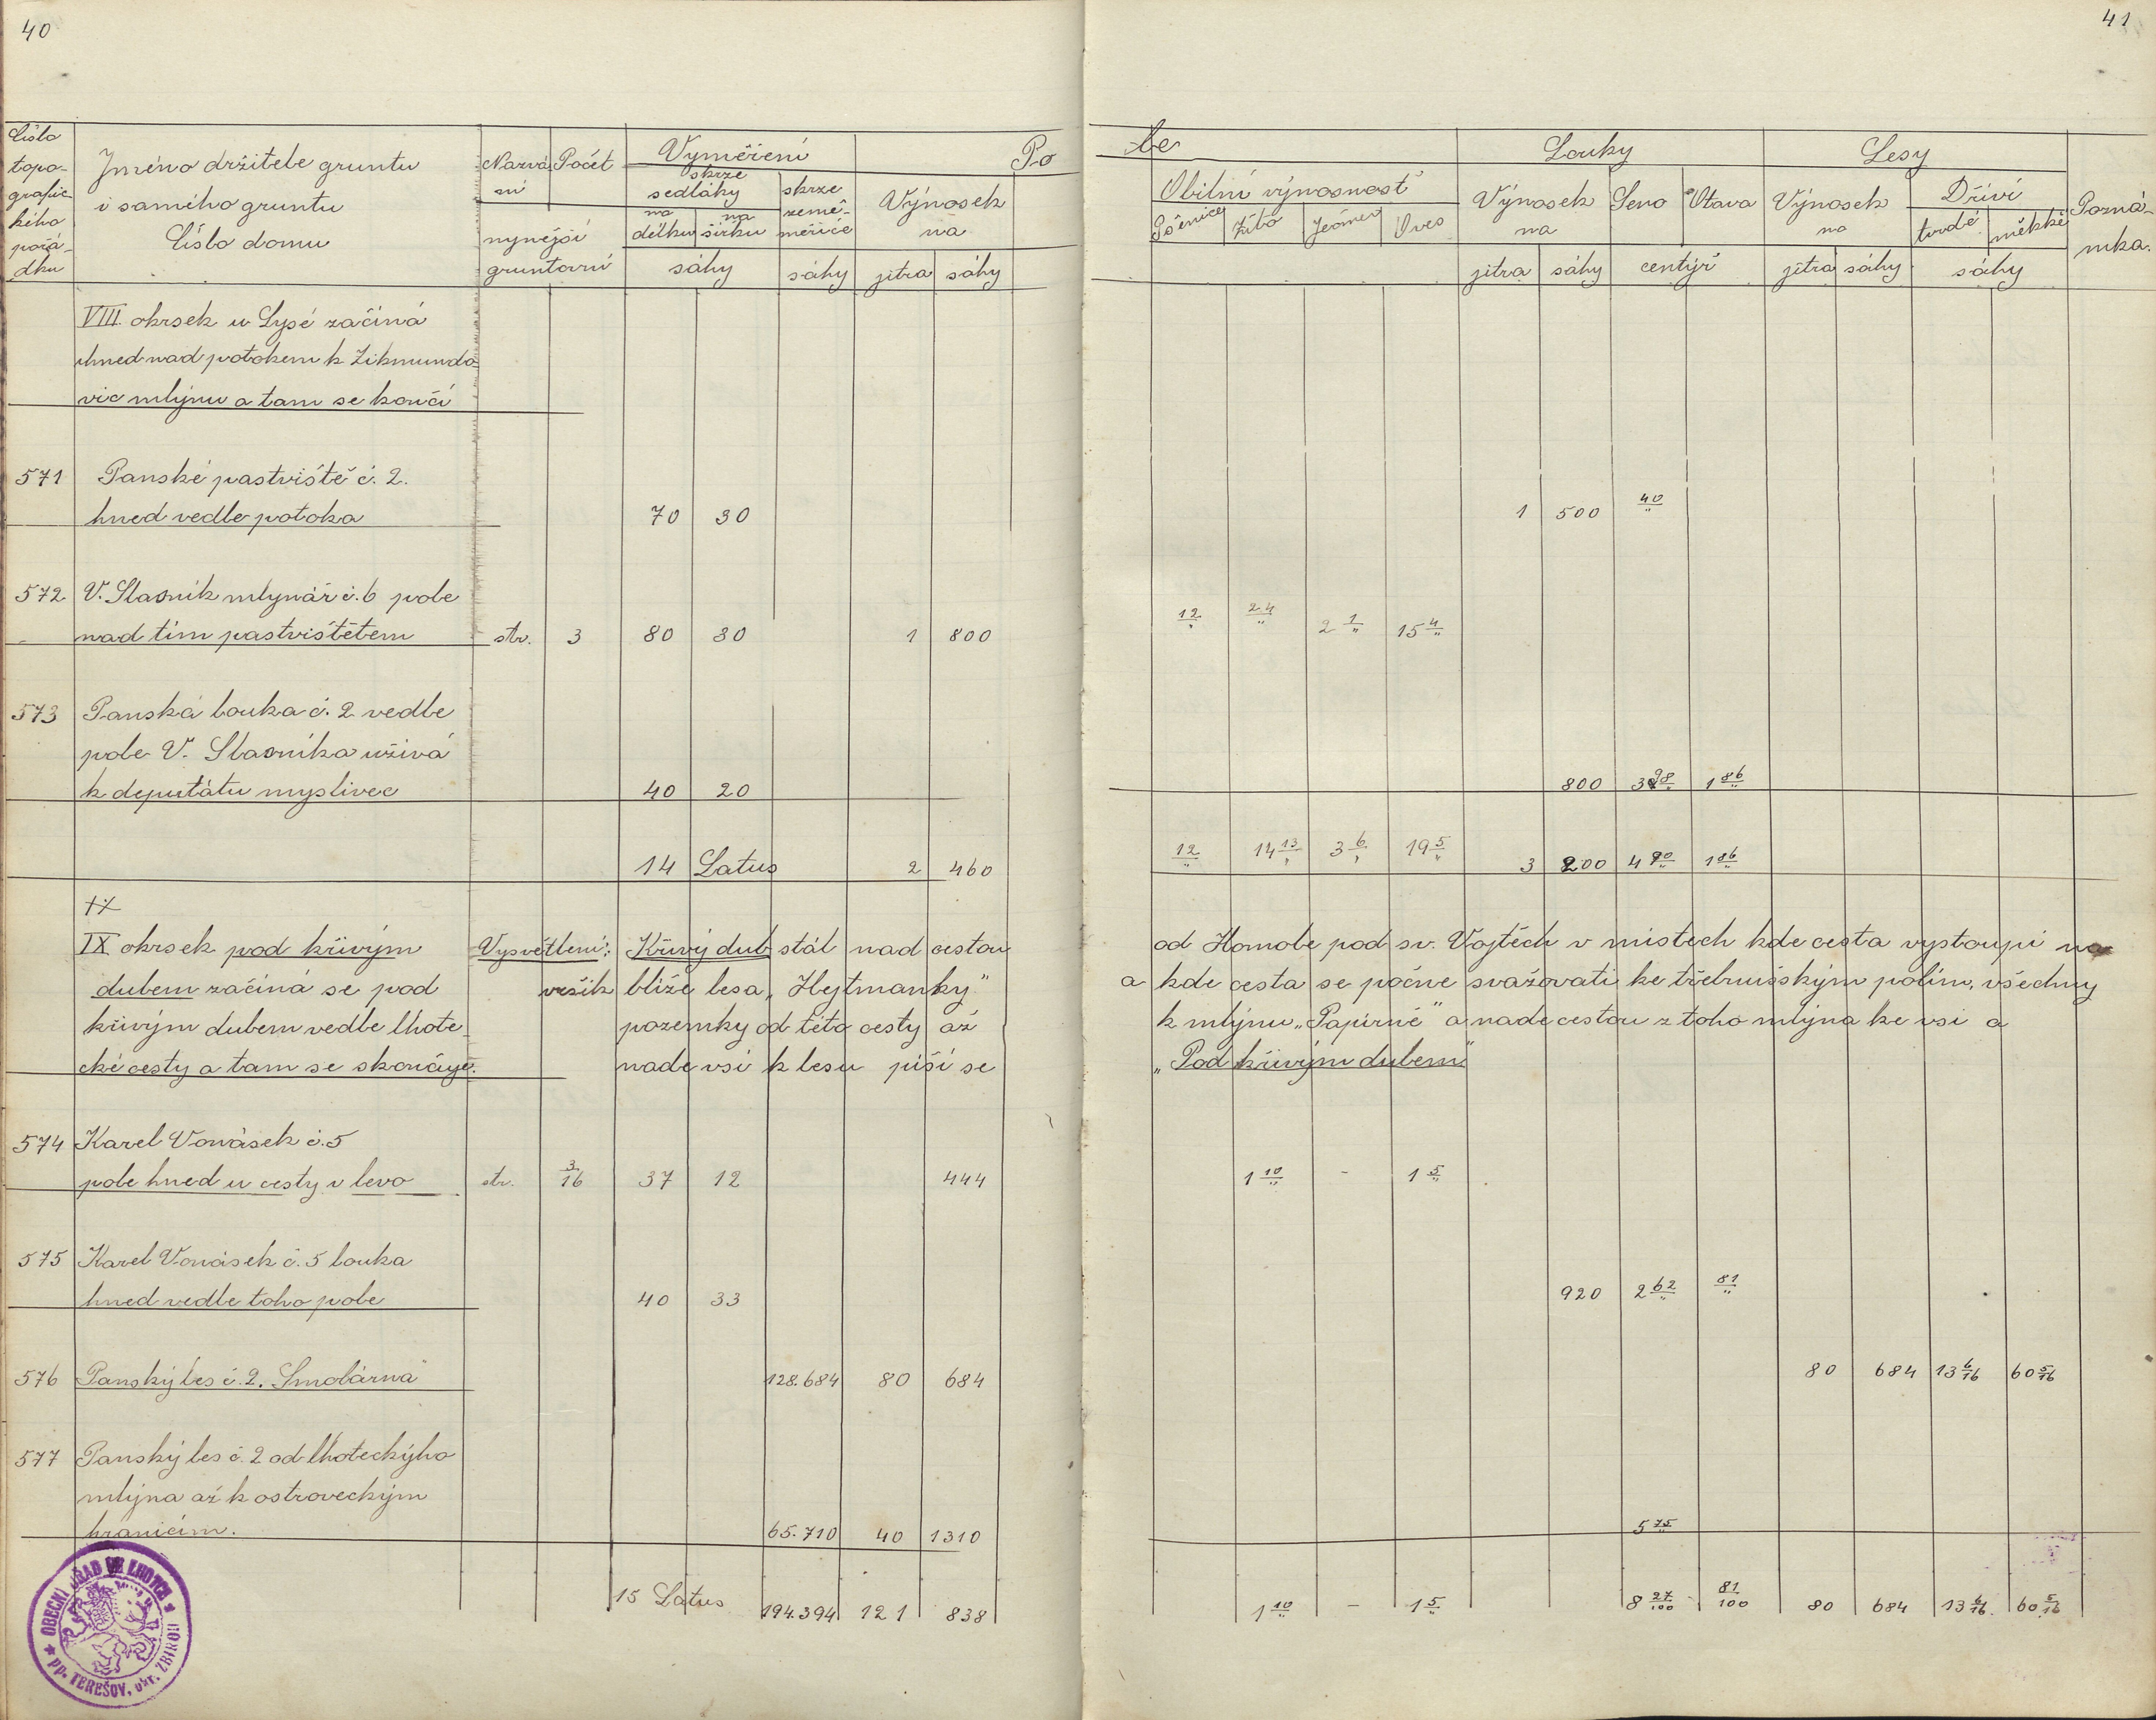 40
41
Číslo topo-grafic-kého pořá-dku | Jméno držitele gruntu i samého gruntu Číslo domu | Nazvá-ní | Počet | nynější gruntovní | Vyměření | skrze sedláky | na délku | na šířku | sáhy | skrze země-měřiče | sáhy | Výnosek na | jitra | sáhy | Po
le | Obilní výnosnost | Pšenice | Žito | Ječmen | Oves | Louky | Výnosek na | jitra | sáhy | Seno | Otava | centýř | Lesy | Výnosek na | jitra | sáhy | Dříví | tvrdé | měkké | sáhy | Pozná-mka.
VIII. okrsek u Lysé začíná
ihned nad potokem k Zikmundo-
vic mlýnu a tam se končí
571 Panské pastviště č. 2.
hned vedle potoka 70 30 1 500 40
572 V. Slasník mlynář č. 6 pole
nad tím pastvištětem str. 3 80 30 1 800 12 24 2 1 15 4
573 Panská louka č. 2 vedle
pole V. Slasníka užívá
k deputátu myslivec 40 20 800 3 98 1 86
14 Latus 2 460 12 14 13 3 6 19 5 3 200 4 90 1 86
IX
IX okrsek pod křivým Vysvětlení: Křivý dub stál nad cestou od Homole pod sv. Vojtěch v místech kde cesta vystoupí na
dubem začíná se pod vršík blíže lesa „Hejtmanky" a kde cesta se počne svažovati ke třebnušským polím, všechny
křivým dubem vedle lhote- pozemky od této cesty až k mlýnu „Papírně" a nade cestou z toho mlýna ke vsi a
cké cesty a tam se skončuje. nade vsí k lesu píší se „Pod křivým dubem"
574 Karel Vonásek č. 5
pole hned u cesty v levo str. 3/16 37 12 444 1 10 - 1 5
575 Karel Vonásek č. 5 louka
hned vedle toho pole 40 33 920 2 62 81
576 Panský les č. 2. Smolárna" 128.684 80 684 80 684 13 6/16 60 5/16
577 Panský les č. 2 od lhoteckýho
mlýna až k ostroveckým
hranicím. 65.710 40 1310 5 75
15 Latus 194.394 121 838 1 10 - 1 5 8 27/100 81/100 80 684 13 6/16. 60 5/16
OBECNÍ ÚŘAD VE LHOTCE
pp. TEREŠOV, okr. ZBIROH